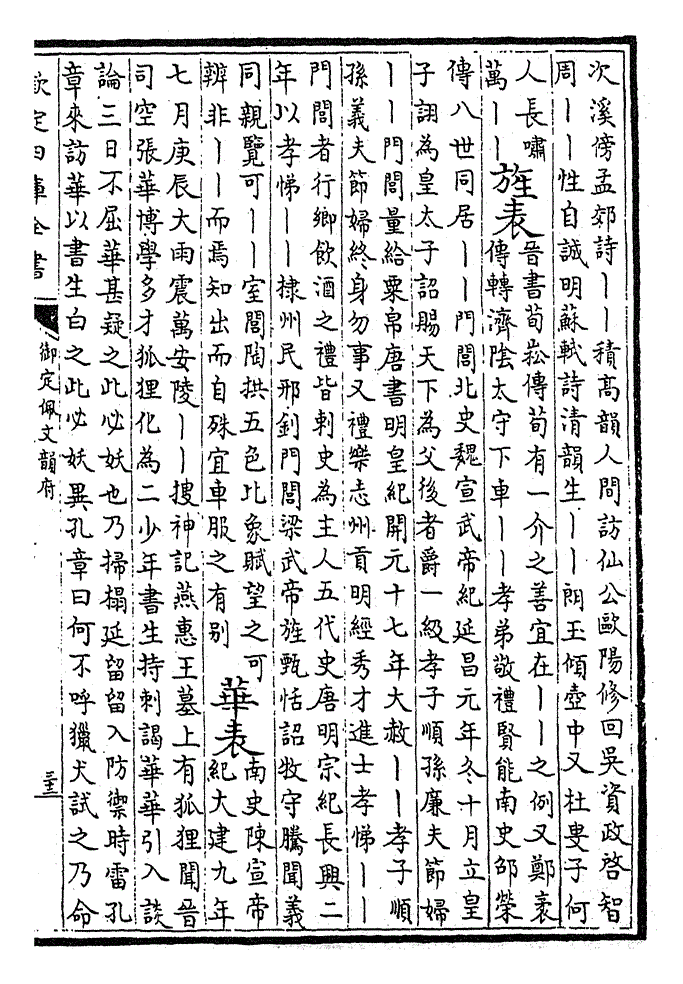 次溪傍孟郊詩丨丨積高韻人問訪仙公歐陽修回吳資政啓智
周丨丨性自誠明蘇軾詩清韻生丨丨朗玉傾壺中又杜叟子何
人長嘯
萬丨丨
旌表
晉書荀崧傳荀有一介之善宜在丨丨之例又鄭袤
傳轉濟陰太守下車丨丨孝弟敬禮賢能南史邵榮
傳八世同居丨丨門閭北史魏宣武帝紀延昌元年冬十月立皇
子詡為皇太子詔賜天下為父後者爵一級孝子順孫廉夫節婦
丨丨門閭量給粟帛唐書明皇紀開元十七年大赦丨丨孝子順
孫義夫節婦終身勿事又禮樂志州貢明經秀才進士孝悌丨丨
門閭者行鄉飲酒之禮皆刺史為主人五代史唐明宗紀長興二
年以孝悌丨丨棣州民邢釗門閭梁武帝旌甄恬詔牧守騰聞義
同親覽可丨丨室閭陶拱五色比象賦望之可
辨非丨丨而焉知出而自殊宜車服之有别
華表
南史陳宣帝
紀大建九年
七月庚辰大雨震萬安陵丨丨搜神記燕惠王墓上有狐狸聞晉
司空張華博學多才狐狸化為二少年書生持刺謁華華引入談
論三日不屈華甚疑之此必妖也乃掃榻延留留入防禦時雷孔
章來訪華以書生白之此必妖異孔章曰何不呼獵犬試之乃命
欽定四庫全書
御定佩文韻府
三十三